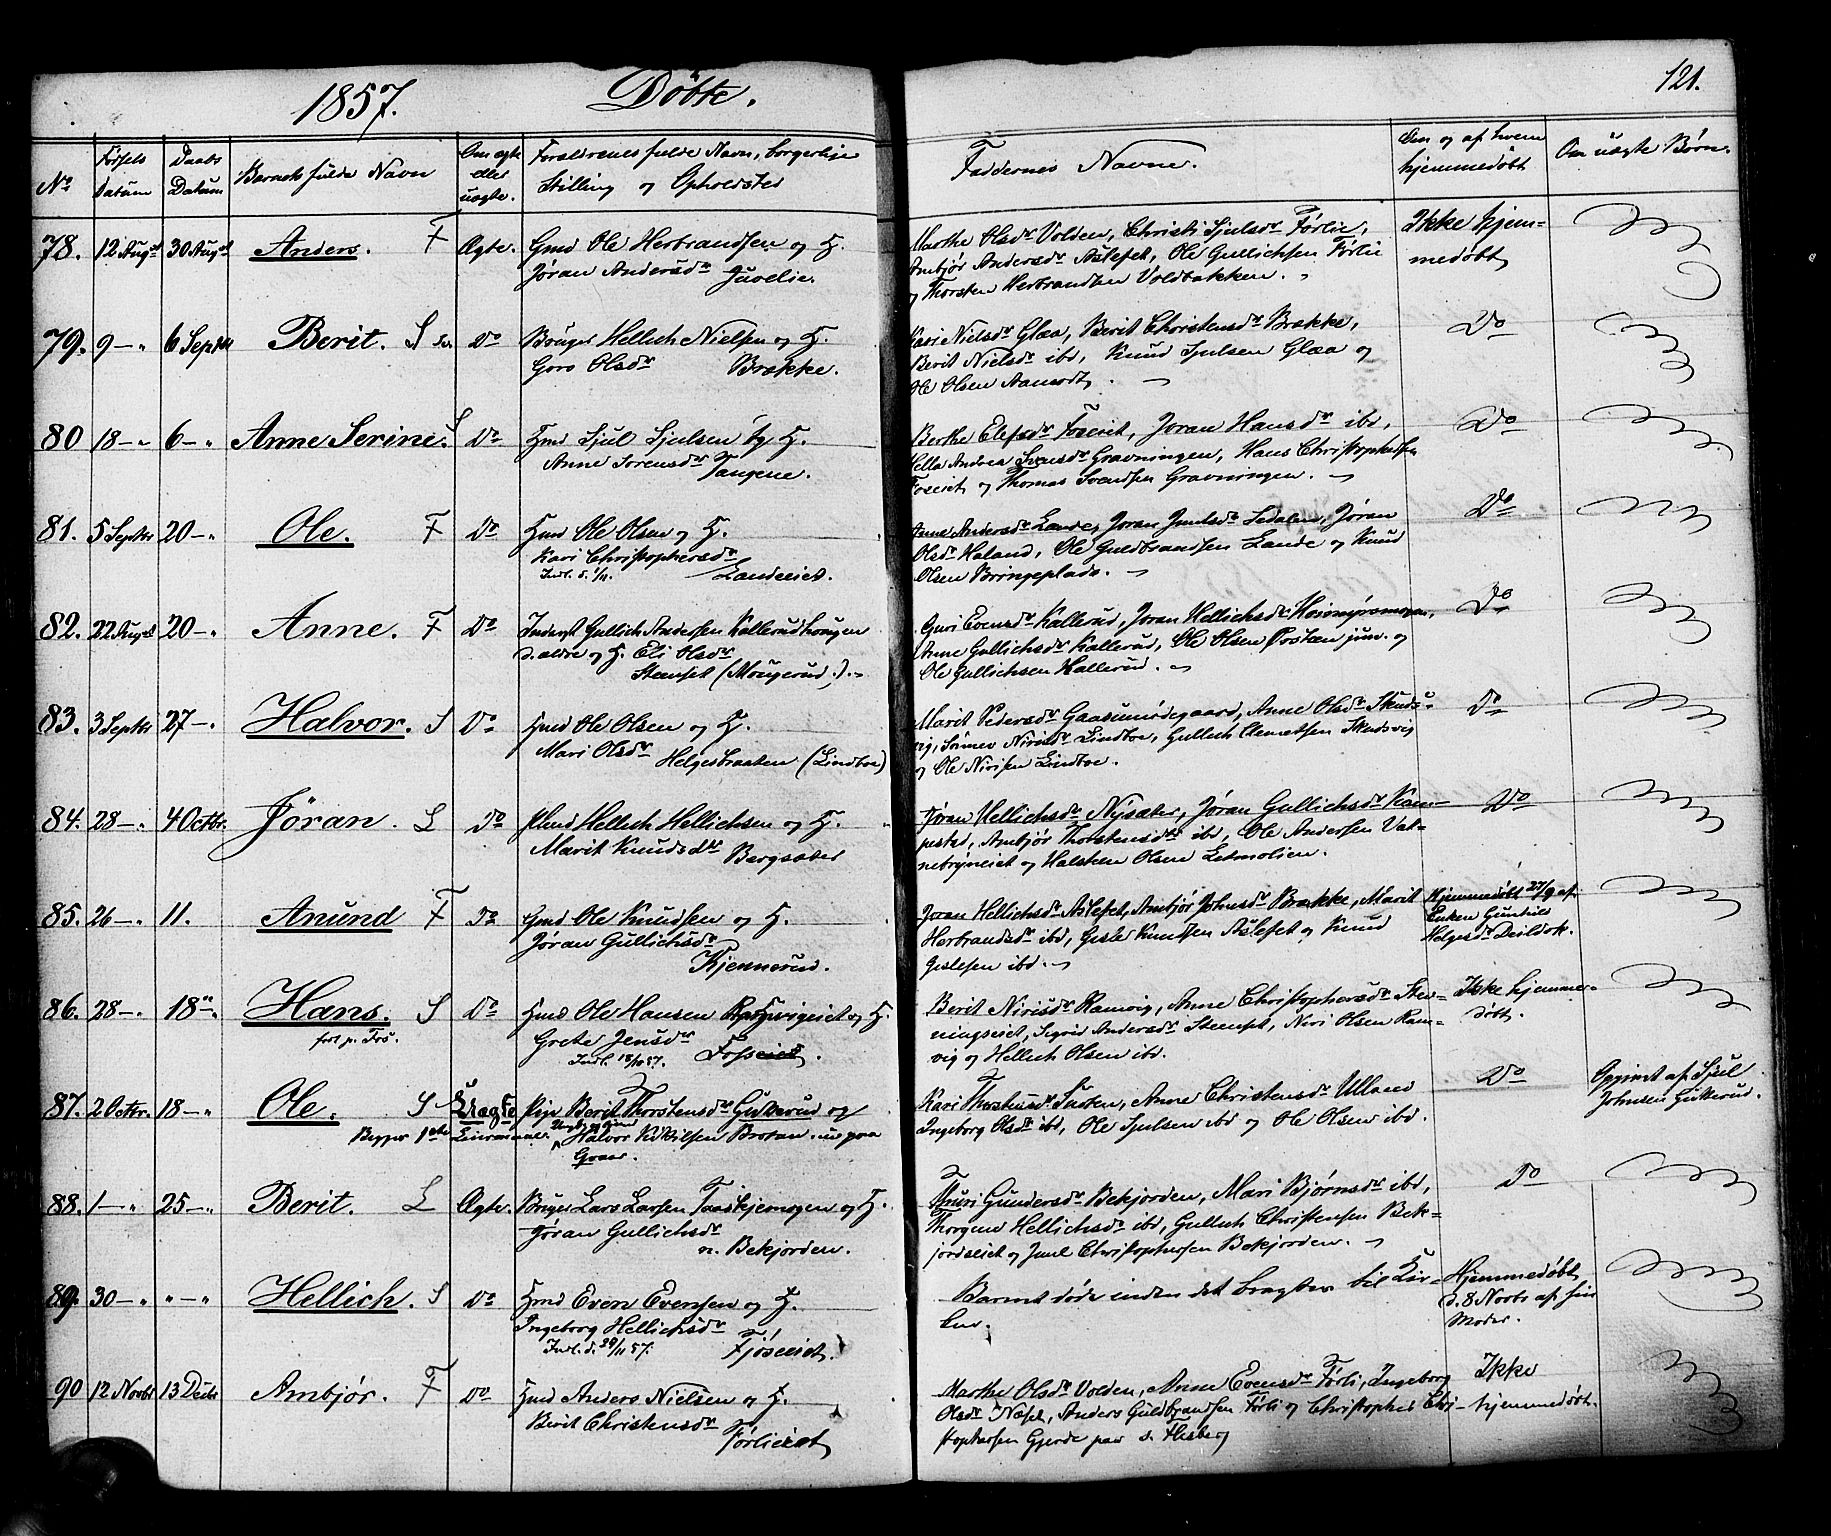 1857.
Döbte.
121.
No
Födsels
Datum
Daabs
Datum
Barnets fulde Navn
Om ægte
eller
uægte.
Forældrenes fulde Navn, borgerlige
Stilling og Opholdsted
Faddernes Navne.
Om og af hvem
hjemmedöbt
Om uægte Börn.
78. 12 Augst 30 Augst Anders. F Ægte. Gmd Ole Herbrandsen og H.
Jöran Andersdr Juvelie.
Marthe Olsdr Volden, Christi Sjulsdr Förlie,
Ambjör Andersdr Aslefet, Ole Gullichsen Förlie
og Thorsten Herbrandsen Voldbakken.
Ikke hjem-
medöbt
79. 9 - " 6 Septbr Berit. S Do Bruger Hellich Nielsen og H.
Goro Olsdr Brække.
Kari Nielsdr Glæa, Berit Christensdr Brække,
Berit Nielsdr ibd, Knud Sjulsen Glæa og
Ole Olsen Aamodt.
Do
80 18 - " 6 - " Anne Serine. S Do Hmd Sjul Sjulsen og H.
Anne Sorensdr Tangene.
Berthe Elefsdr Foseiet, Joran Hansdr ibd,
Hella Andrea Svensdr Gravningen, Hans Christophersen
Foseiet og Thomas Svendsen Gravningen.
Do
81. 5 Septbr 20 - " Ole. F Do Hmd Ole Olsen og H.
Kari Christophersdr
Indl. d. 1/11. Landeeiet.
Anne Andersdr Lande, Joran Juulsdr Sedalen, Jöran
Olsdr Haland, Ole Guldbrandsen Lande og Knud
Olsen Bringeplads.
Do
82. 22 Augst 20 - " Anne. F Do Inderst Gullich Andersen Kallerudhougen
d. ældre og H. Eli Olsdr
Steenset (Mougerud.).
Guri Evensdr Kallerud, Joran Hellichsdr
Anne Gullichsdr Kallerud, Ole Olsen jun. og
Ole Gullichsen Kallerud.
Do
83. 3 Septbr 27 - " Halvor. S Do Hmd Ole Olsen og H.
Mari Olsdr Helgesbraaten (Lindboe)
Marit Pedersdr Gaasumödegaard, Anne Olsdr Skuds-
vig, Nirisdr Lindboe, Gullich Clemetsen Skudsvig
og Ole Nirisen Lindboe.
Do
84. 28 - " 4 Octbr. Jöran. L Do Plmd Hellich Hellichsen og H.
Marit Knudsdtr Bergsæter
Jöran Hellichsdr Nysæter, Jöran Gullichsdr Kam-
pestad, Ambjör Thorstensdr ibd, Ole Andersen Vat-
nebryneiet og Halsten Olsen Letmolien.
Do
85. 26 - " 11. Anund F Do Gmd Ole Knudsen og H.
Jöran Gullichsdr
Kjennerud.
Joran Hellichsdr Aslefet, Ambjör Johnsdr Brække, Marit
Herbrandsdr ibd, Gisle Knudsen Aslefet og Knud
Gislesen ibd.
Hjemmedöbt 27/9 af
Enken Gunhild
Helgesdr Deildok.
86. 28 - " 18 " Hans. S Do Hmd Ole Hansen og H.
Grete Jensdr
födt p. Fos.
Indl. 18/10 57. Fosseiet.
Berit Nirisdr Ramvig, Anne Christophersdr Stev-
ningseiet, Sigrid Andersdr Steenset, Niri Olsen Ram-
vig og Hellich Olsen ibd.
Ikke hjemme-
döbt.
87. 2 Octbr. 18 - " Ole. S Uægte Pige Berit Thorstensdr Gulkerud og
Begges 1ste Leiermaal Halvor Kittilsen Brotan
Graver.
Kari Thorstensdr Susten, Anne Christensdr Ulland
Ingeborg Olsdr ibd, Ole Sjulsen ibd og Ole Olsen ibd.
Do
Opgivet af Sjul
Johnsen Gulkerud.
88. 1 - " 25 - " Berit. L Ægte. Bruger Lars Larsen Faaskjemogen og H.
Jöran Gullichsdr
n. Bekjorden.
Thuri Gundersdr Bekjorden, Mari Björnsdr ibd,
Thorgune Hellichsdr ibd, Gullich Christensen Bek-
jordseiet og Juul Christophersen Bekjorden.
Do
89. 30 - " " - " Hellich. S Do Hmd Even Evensen og H.
Ingeborg Hellichsdr
Indl. d. 29/11 57. Fjöseiet.
Barnet döde inden det bragtes til Kir-
ken.
Hjemmedöbt
d. 8 Novbr af sin
Moder.
90 12 Novbr 13 Decbr Ambjör. F Do Hmd Anders Nielsen og H.
Berit Christensdr
Förlieiet
Marthe Olsdr Volden, Anne Evensdr Förli, Ingeborg
Olsdr Næset, Anders Guldbrandsen Förli og Christopher Chri-
stophersen Gjerde paa d. Flesberg
Ikke
hjemmedöbt.